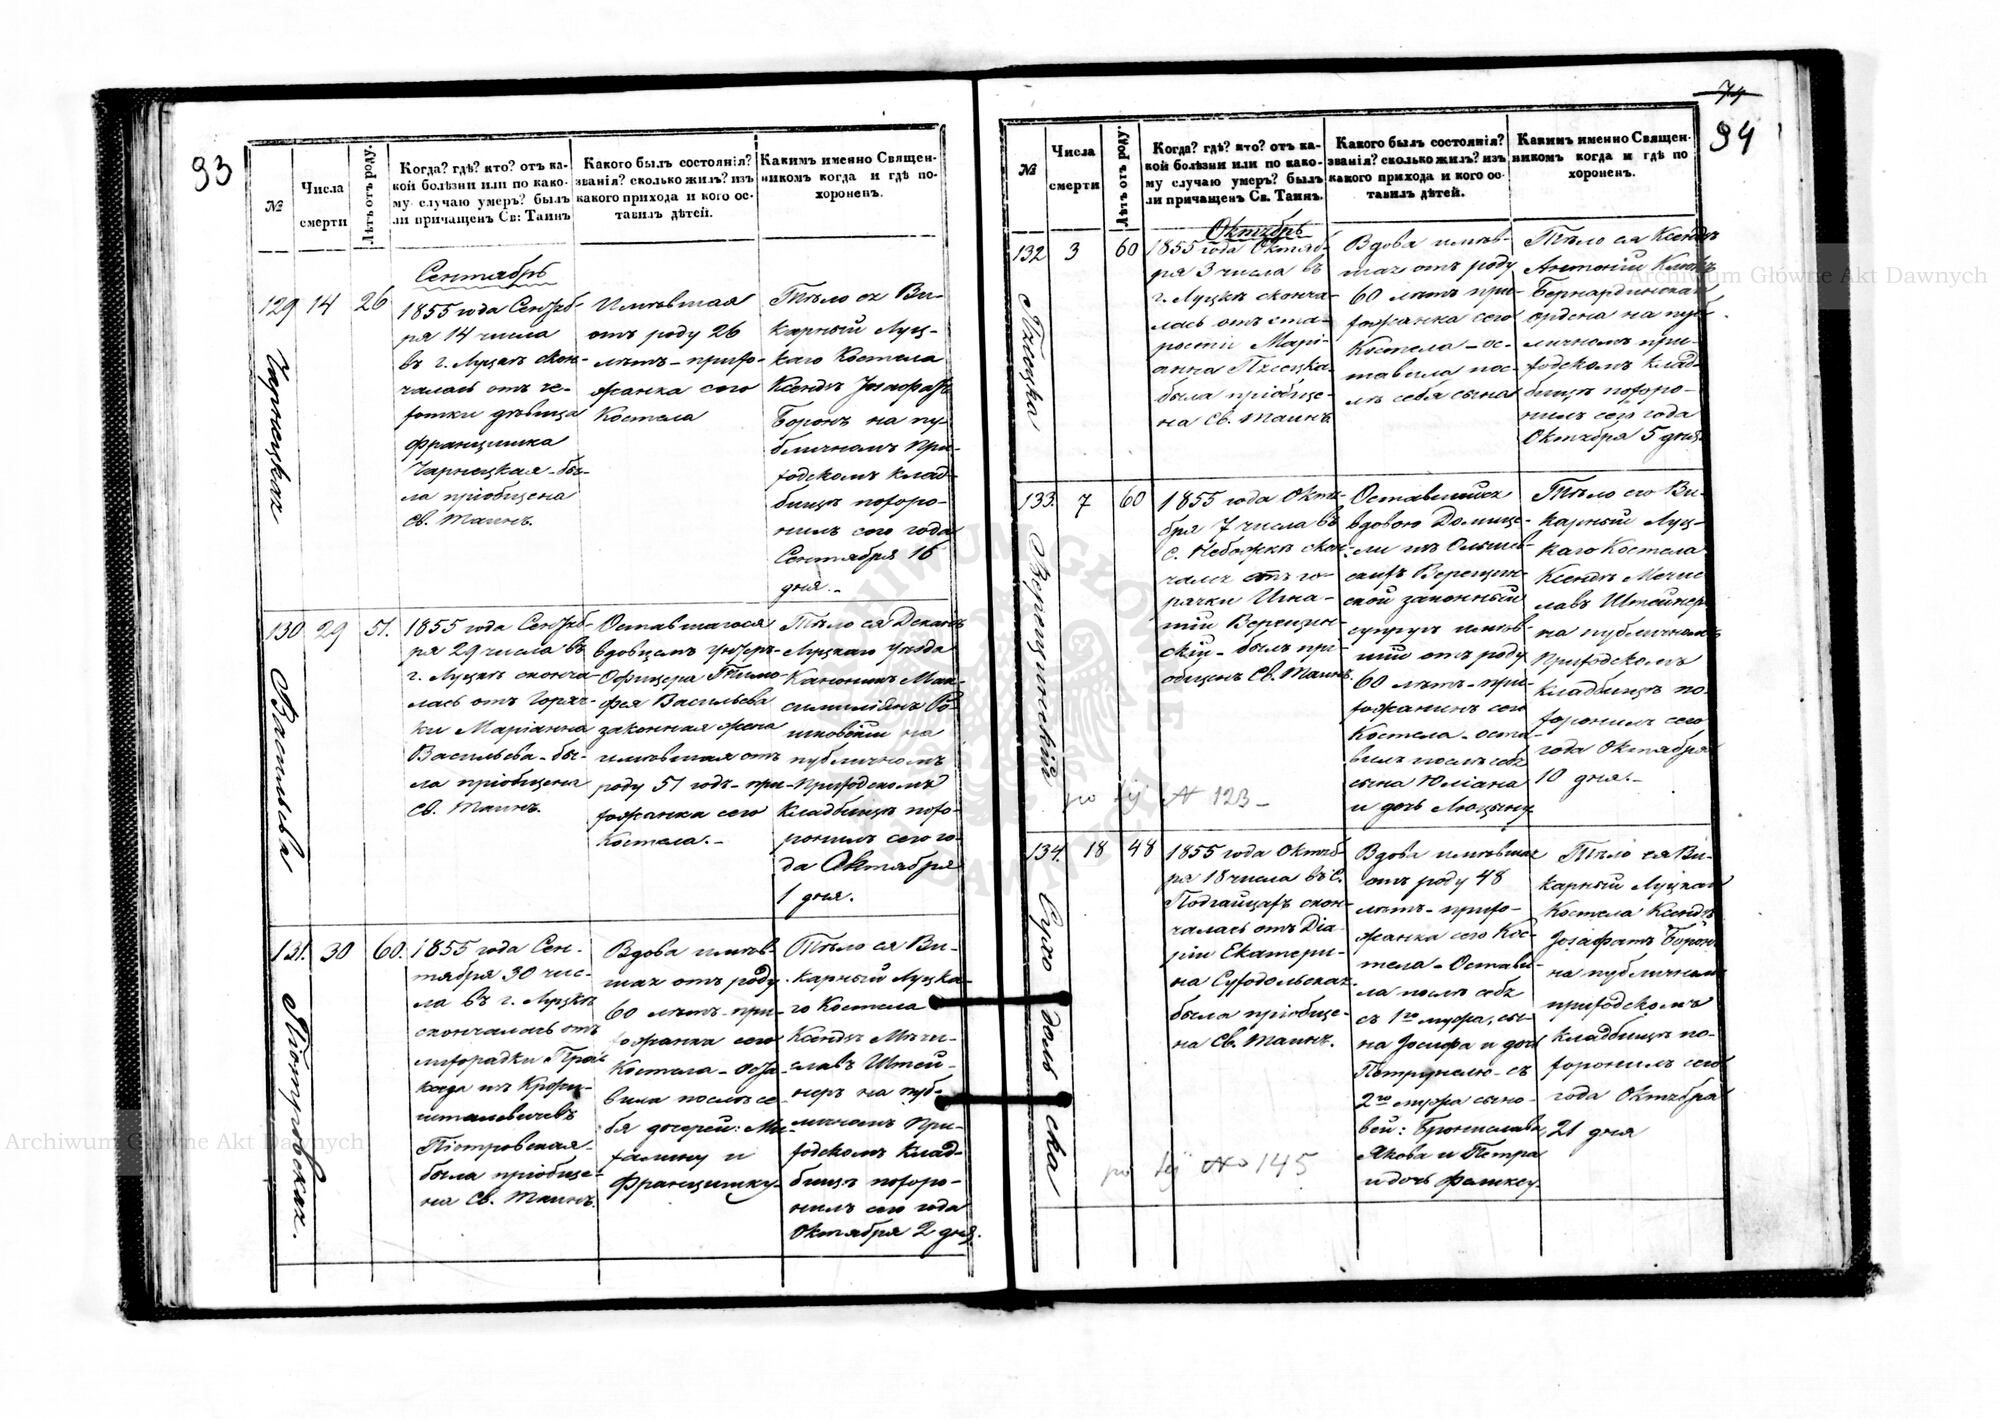 93
№
Числа
смерти
Лѣтъ отъ роду.
Когда? гдѣ? кто? отъ ка-
кой болѣзни или по како-
му случаю умеръ? былъ
ли причащенъ Св: Таинъ
Какого былъ состоянія?
званія? сколько жилъ? изъ
какого прихода и кого ос-
тавилъ дѣтей.
Какимъ именно Священ-
никомъ когда и гдѣ по-
хороненъ.
Сентябрь
129 14 26
Чарнецкая
1855 года Сентяб-
ря 14 числа
въ г. Луцкѣ скон-
чалась отъ че-
хотки дѣвица
Францишка
Чарнецкая - бы-
ла пріобщена
Св. Таинъ.
Имѣвшая
отъ роду 26
лѣтъ - прихо-
жанка сего
Костела
Тѣло ея Ви-
карный Луц-
каго Костела
Ксендзъ Іозафатъ
Боронъ на пу-
бличномъ при-
ходскомъ клад-
бищѣ похоро-
нилъ сего года
Сентября 16
дня.-
130 29 51.
Васильева
1855 года Сентяб-
ря 29 числа въ
г. Луцкѣ сконча-
лась отъ Горяч-
ки Маріанна
Васильева - бы-
ла пріобщена
Св. Таинъ.
Оставшагося
вдовцемъ унтеръ-
Офицера Тимо-
фея Васильева
законная жена
имѣвшая отъ
роду 51 годъ - при-
хожанка сего
Костела.-
Тѣло ея Деканъ
Луцкаго уѣзда
Каноникъ Мак-
симиліянъ
на
публичномъ
Приходскомъ
Кладбищѣ похо-
ронилъ сего го-
да Октября
1 дня.
131. 30 60.
Піотровская.
1855 года Сен-
тября 30 чис-
ла въ г. Луцкѣ
скончалась отъ
лихорадки
изъ
Піотровская -
была пріобще-
на Св. Таинъ.
Вдова имѣв-
шая отъ роду
60 лѣтъ - при-
хожанка сего
Костела - оста-
вила послѣ се-
бя дочерей: Ми-
халину и
Францишку.
Тѣло ея Ви-
карный Луцка-
го Костела
Ксендзъ Мѣчи-
славъ Штей-
неръ на пуб-
личномъ При-
ходскомъ Клад-
бищѣ похоро-
нилъ сего года
Октября 2 дня.
74
94
№
Числа
смерти
Лѣтъ отъ роду.
Когда? гдѣ? кто? отъ ка-
кой болѣзни или по како-
му случаю умеръ? былъ
ли причащенъ Св. Таинъ.
Какого былъ состоянія?
званія? сколько жилъ? изъ
какого прихода и кого ос-
тавилъ дѣтей.
Какимъ именно Священ-
никомъ когда и гдѣ по
хороненъ.
Октябрь
132 3 60
1855 года Октяб-
ря 3 числа въ
г. Луцкѣ сконча-
лась отъ ста-
рости Марі-
анна
была пріобще-
на Св. Таинъ.
Вдова имѣв-
шая отъ роду
60 лѣтъ при-
хожанка сего
Костела - ос-
тавила пос-
лѣ себя сына
Тѣло ея Ксендзъ
Антоній
Бернардинскаго
ордена на пуб-
личномъ при-
ходскомъ клад-
бищѣ похоро-
нилъ сего года
Октября 5 дня.
133. 7 60
Верещинскій
1855 года Октя-
бря 7 числа въ
с. Небожкѣ скон-
чался отъ го-
рячки Игна-
тій Верещин-
скій - былъ прі-
общенъ Св. Таинъ.
Оставшися
вдовою Домице-
ли изъ
Верещин-
ской законный
супругъ имѣв-
шій отъ роду
60 лѣтъ - при-
хожанинъ сего
Костела - оста-
вилъ послѣ себѣ
сына Юліана
и дочь Люцыну.
Тѣло его Ви-
карный Луц-
каго Костела
Ксендзъ Мечис-
лавъ Штейнеръ
на публичномъ
Приходскомъ
кладбищѣ по-
хоронилъ сего
года Октября
10 дня.-
po № 123 -
134. 18 48
Суходольска
1855 года Октяб-
ря 18 числа въ с.
Подгайцахъ скон-
чалась отъ Діа-
ріи Екатери-
на Суходольская
была пріобще-
на Св. Таинъ.
Вдова имѣвшая
отъ роду 48
лѣтъ - прихо-
жанка сего Кос-
тела - Остави-
ла послѣ себѣ
съ 1го мужа, сы-
на Іосифа и дочь
Петрунелю - съ
2го мужа сыно-
вей: Бронислава
Якова и Петра
и дочь
Тѣло ея Ви-
карный Луцкаго
Костела Ксендзъ
Іозафатъ Боронъ
на публичномъ
приходскомъ
кладбищѣ по-
хоронилъ сего
года Октября
21 дня
po № 145
Archiwum Główne Akt Dawnych
Archiwum Główne Akt Dawnych
ARCHIWUM GŁÓWNE AKT DAWNYCH